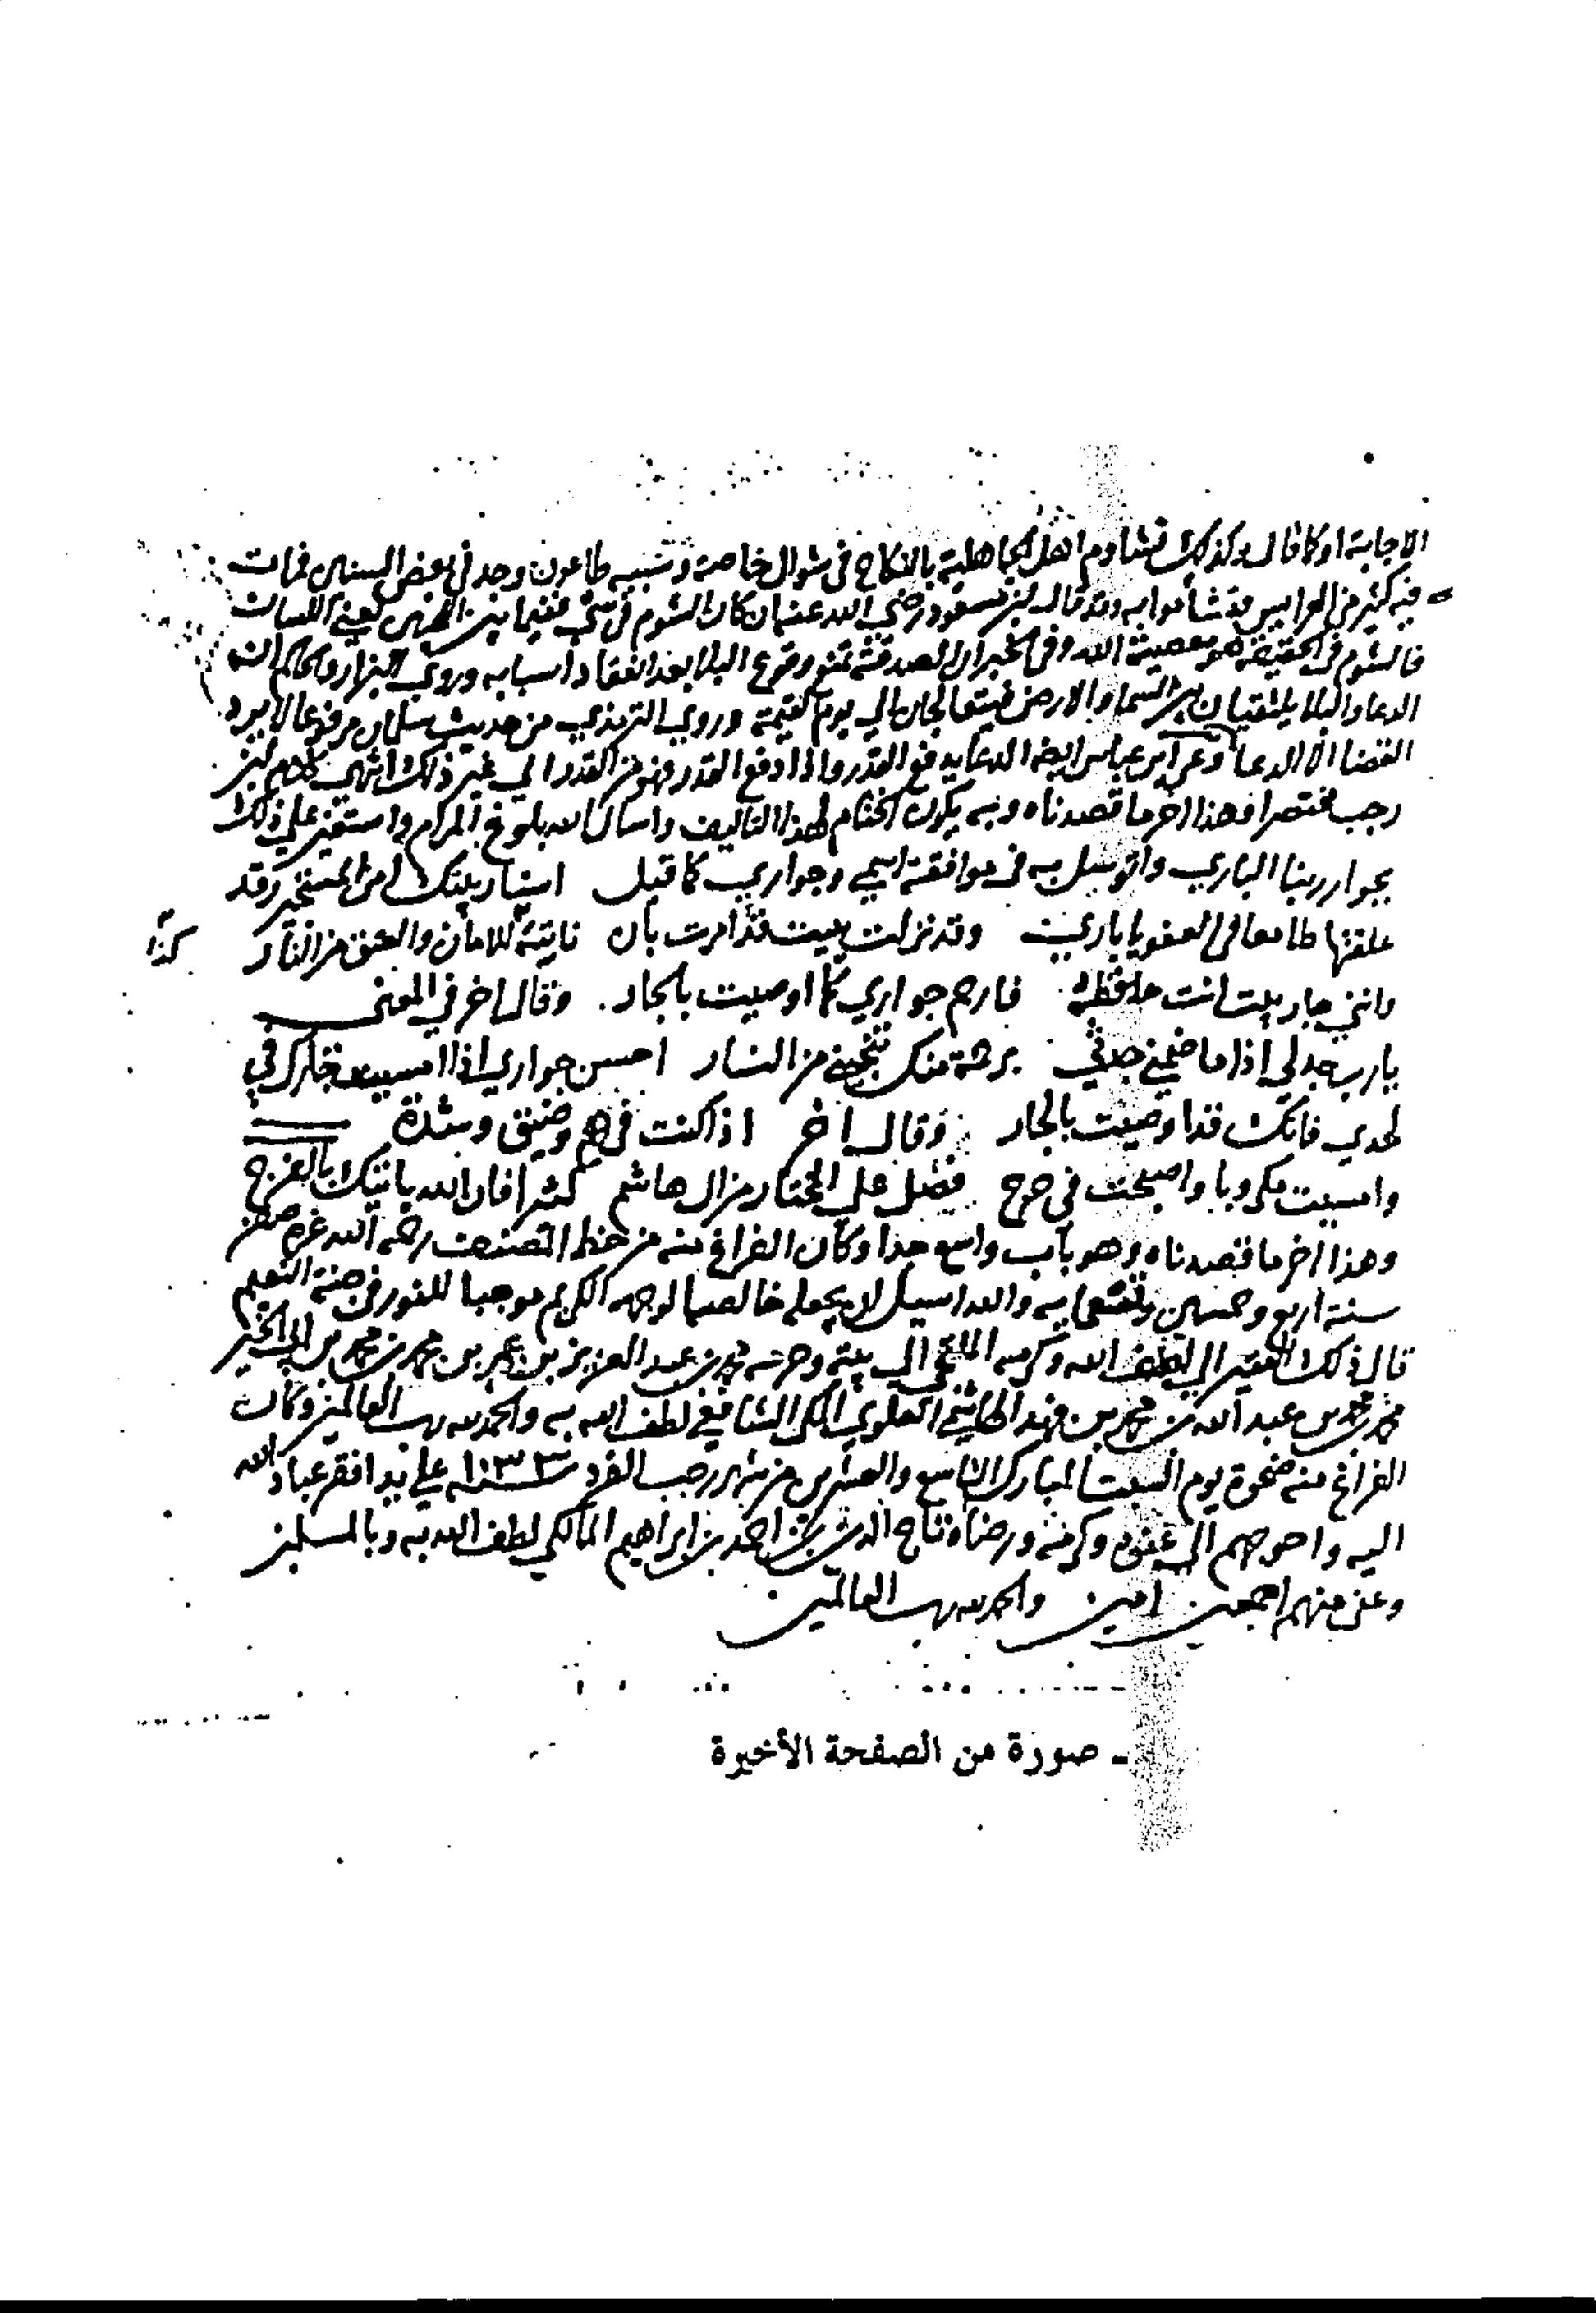 الاجابة او كما قال وكذلك تشاوم اهل الجاهلية بالنكاح في شوال خاصة وسببه طاعون وجد في بعض السنين فمات
فيه كثير من العرايس فتشاموا به وقد قال بن مسعود رضي الله عنه ان كان الشوم في شي ففيما بين يعني اللسان
فالشوم في الحقيقة هو معصية الله وفي الخبر ان الصدقة تمنع وقوع البلا بعد انعقاد اسبابه وروي البزار والحاكم ان
الدعا والبلا يلتقيان بين السما والارض فيعتلجان الي يوم القيمة وروي الترمذي من حديث سلمان مرفوعا لا يرد
القضا الا الدعا وعن ابن عباس ايضا الدعا يدفع القدر واذا دفع القدر فهو من القدر الي غير ذلك انتهي كلام بن
رجب مختصرا وهذا اخر ما قصدناه وبه يكون الختام لهذا التاليف واسال الله بلوغ المرام واستعين علي ذلك
بجوار ربنا الباري واتوسل به في موافقة اسمي وجواري كما قيل استار بيتك امن المستجير وقد
علقتها طامعا في العفو يا باري وقد نزلت ببيت قد امرت بان ناتيه للامان والعتق من النار كذا
وانني جار بيت انت حافظه فارحم جواري كما اوصيت بالجار. وقال اخر في المعنى
يا رب جد لي اذا ما ضمني جدثي برحمة منك تنجيني من النار احسن جواري اذا امسيت جارك في
لحدي فانك قد اوصيت بالجار وقال اخر اذا كنت في هم وضيق وشدة
وامسيت مكروبا واصبحت في حرج فصل علي المختار من ال هاشم كثيرا فان الله ياتيك بالفرج
وهذا اخر ما قصدناه وهو باب واسع جدا وكان الفراغ منه من خط المصنف رحمه الله غرة صفر
سنة اربع وخمسين وتسعمايه والله اسيل ان يجعله خالصا لوجهه الكريم موجبا للفوز في جنة النعيم
قال ذلك الفقير الي لطف الله وكرمه الملتجي الي بيته وحرمه محمد بن عبد العزيز بن عمر بن محمد بن محمد بن ابي الخير
محمد بن محمد بن عبد الله بن محمد بن فهد الهاشمي العلوي المكي الشافعي لطف الله به والحمد لله رب العالمين وكان
الفراغ منه ضحوة يوم السبت المبارك التاسع والعشرين من شهر رجب الفرد سنة ١٠٣٣ علي يد افقر عباد الله
اليه واحوجهم الي عفوه وكرمه ورضاه تاج الدين بن احمد بن ابراهيم المالكي لطف الله به وبالمسلمين
وعفى عنهم اجمعين امين والحمد لله رب العالمين
ـ صورة من الصفحة الأخيرة